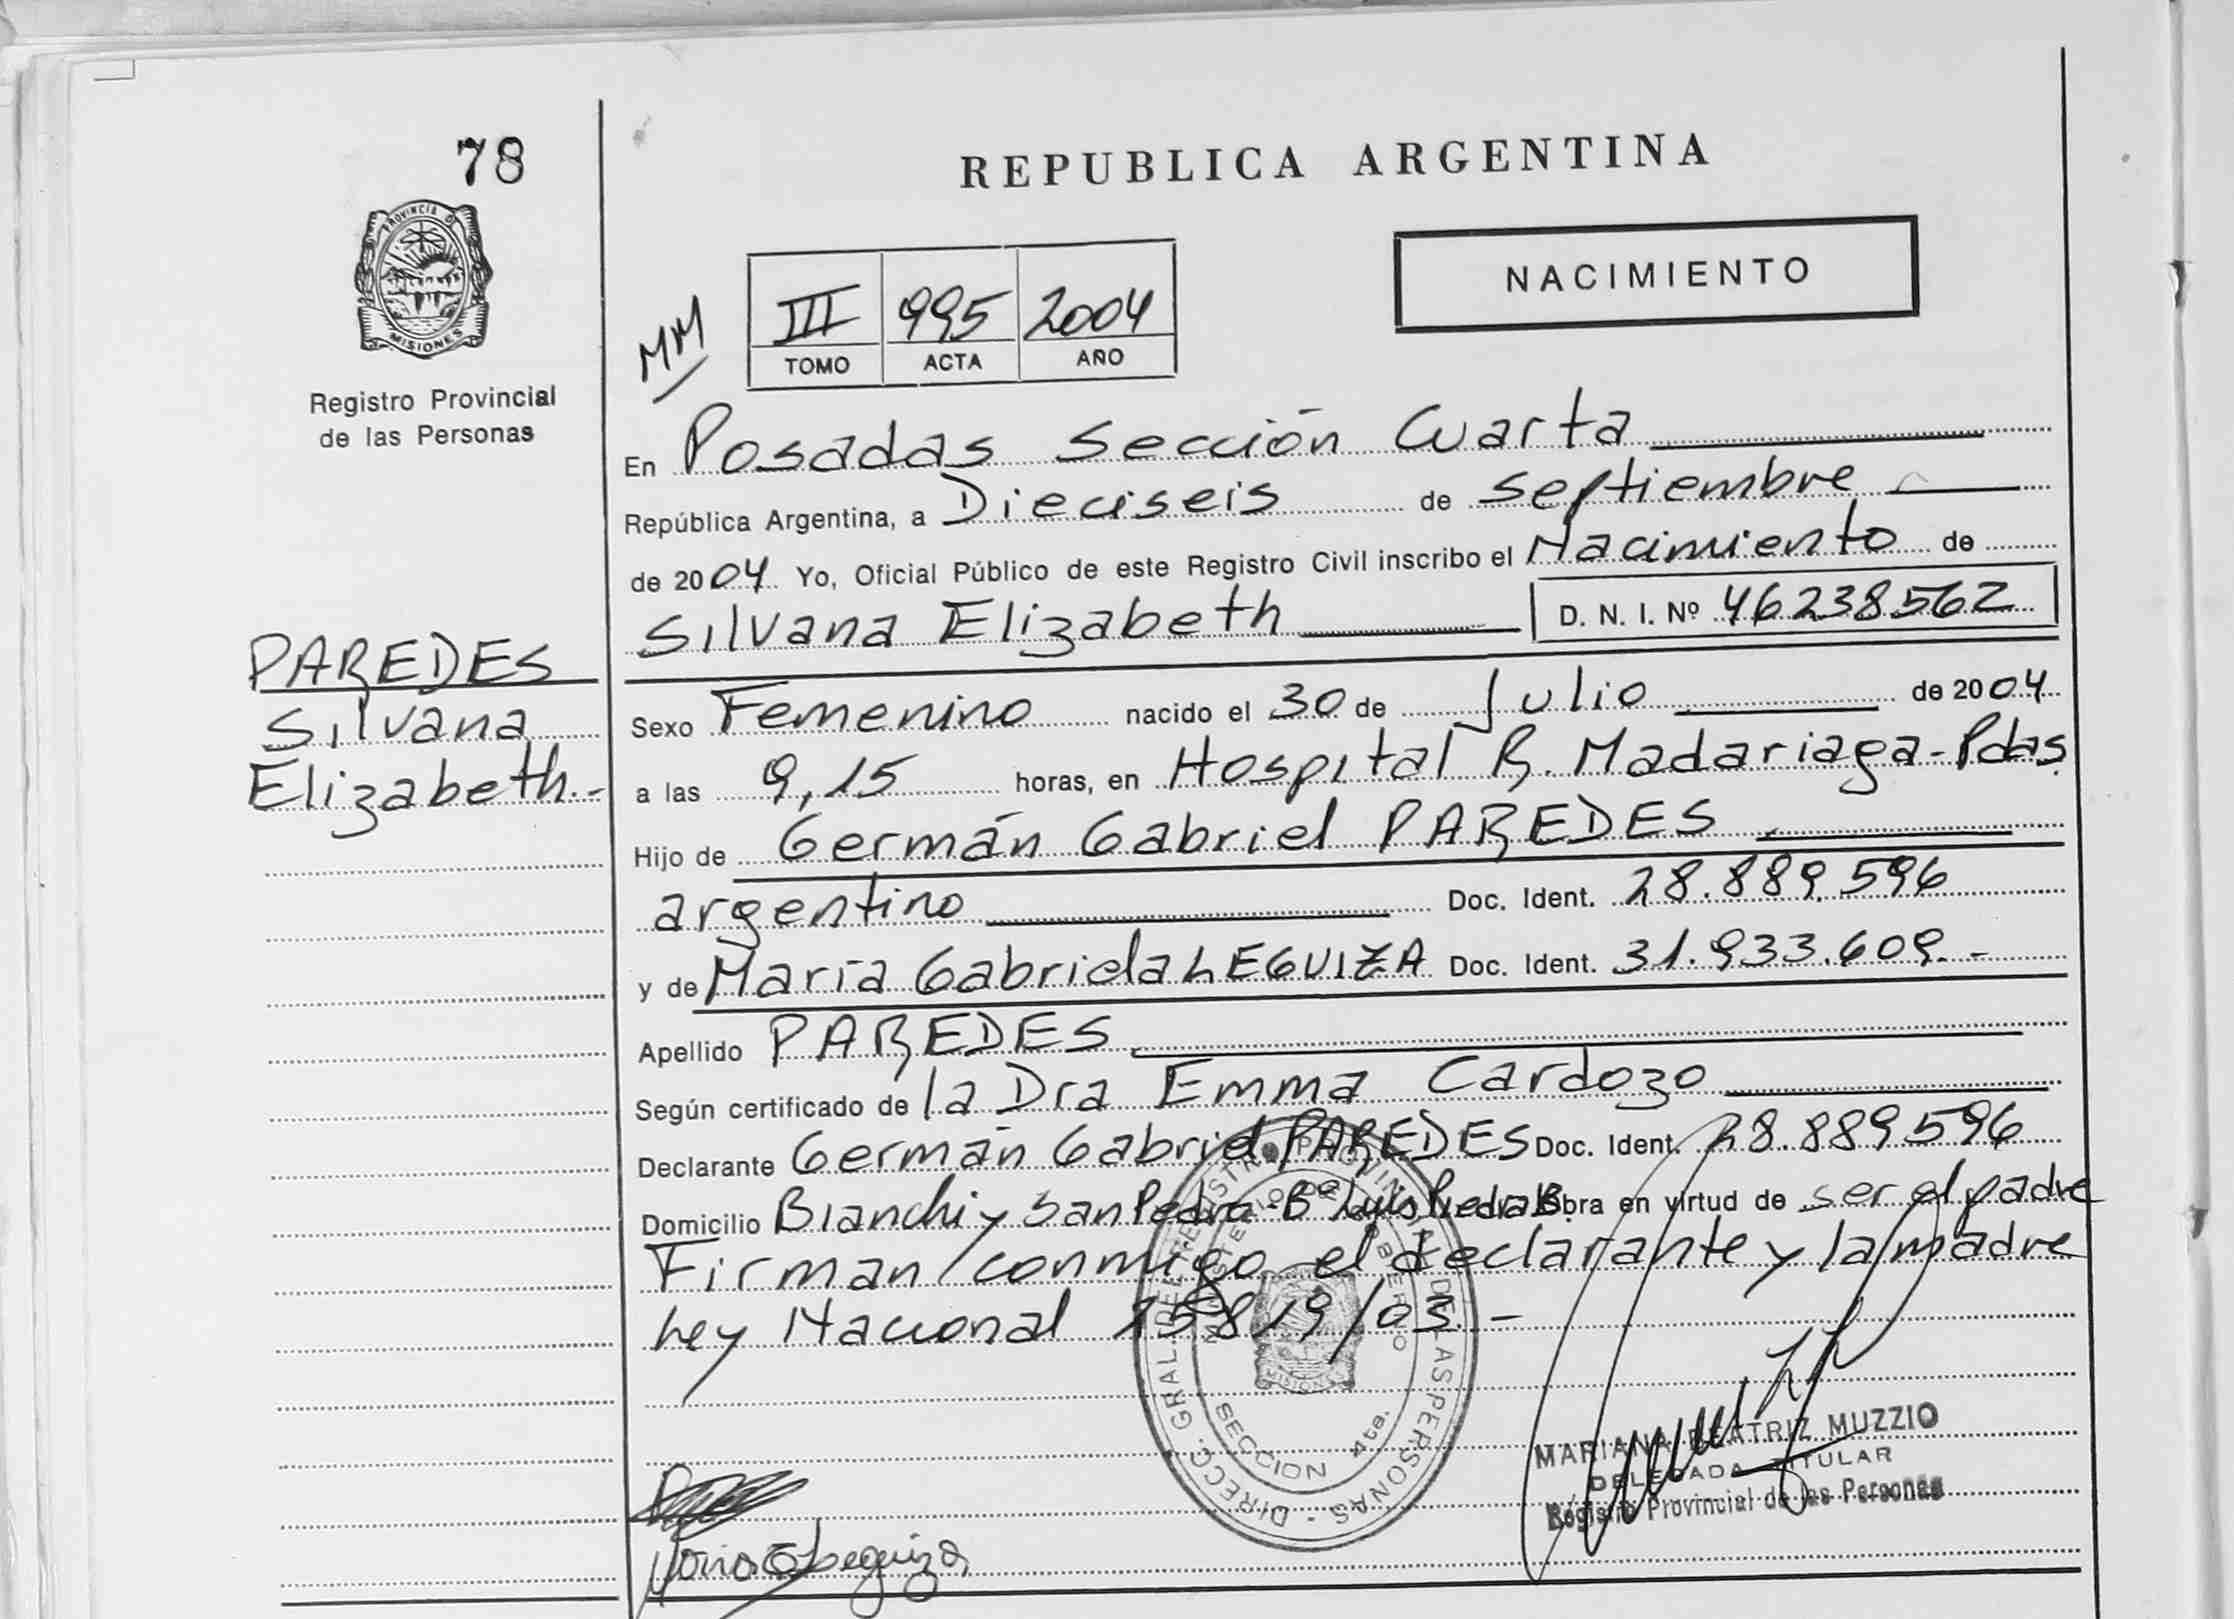 78
PROVINCIA DE
MISIONES
Registro Provincial
de las Personas
PAREDES
Silvana
Elizabeth.-
REPUBLICA ARGENTINA
NACIMIENTO
MM
III 995 2004
TOMO ACTA AÑO
En Posadas Sección Cuarta
República Argentina, a Dieciseis de septiembre
de 2004 Yo, Oficial Público de este Registro Civil inscribo el Nacimiento de
Silvana Elizabeth D. N. I. Nº 46238562
Sexo Femenino nacido el 30 de Julio de 2004
a las 9,15 horas, en Hospital R. Madariaga-Pdas.
Hijo de Germán Gabriel PAREDES
argentino Doc. Ident. 28.889.596
y de María Gabriela LEGUIZA Doc. Ident. 31.933.609.-
Apellido PAREDES
Según certificado de la Dra Emma Cardozo
Declarante Germán Gabriel PAREDES Doc. Ident. 28.889596
Domicilio Bianchi y San Pedro-Bº Luis Piedra B. Obra en virtud de ser el padre
Firman conmigo el declarante y la madre
Ley Nacional 25819/03.-
SECCION 4ta.
MARIANA BEATRIZ MUZZIO
DELEGADA TITULAR
Registro Provincial de las Personas